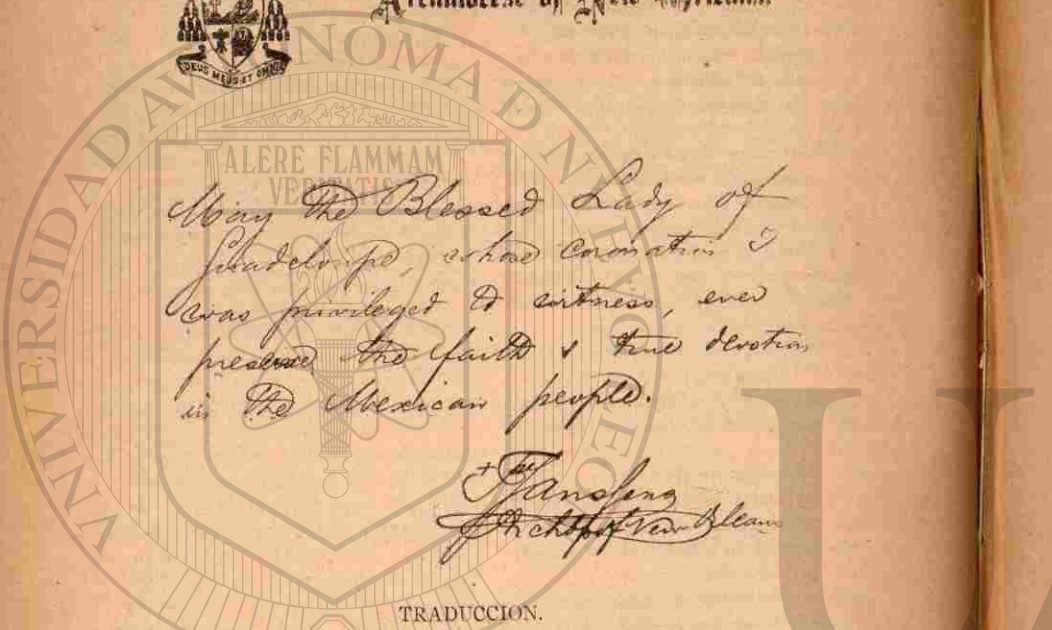 Archdiocese of New Orleans.
DEUS MEUS ET OMNIA
UNIVERSIDAD AUTONOMA DE NUEVO LEON
ALERE FLAMMAM
VERITATIS
May the Blessed Lady of
Guadeloupe, whose coronation I
was privileged to witness, ever
preserve the faith & true devotion
in the Mexican people.
+ F Janssens
Archbp of New Orleans
TRADUCCION.